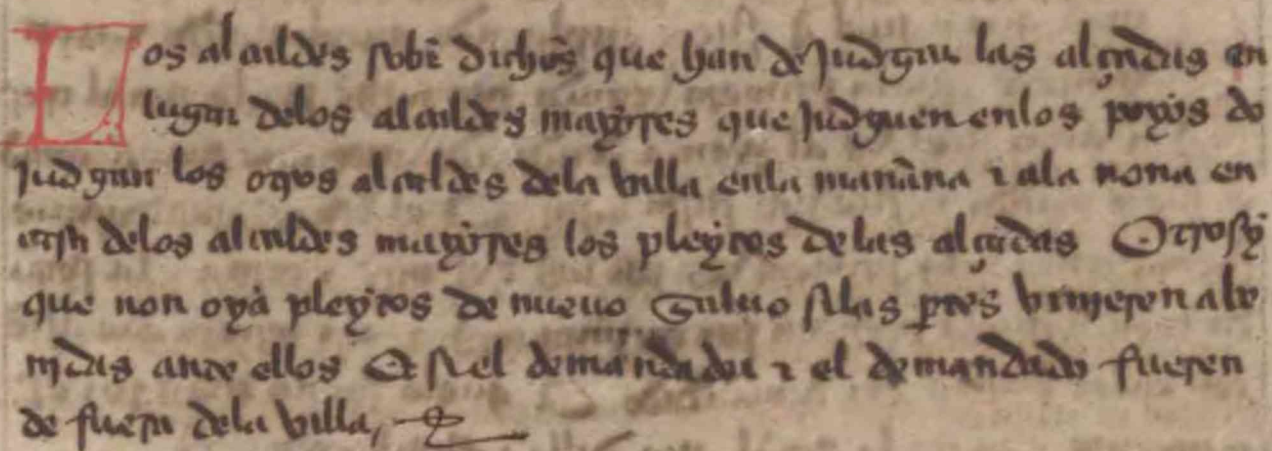 Los alcalldes sobre dichos que han de Judgar las alçadas en
lugar delos alcalldes mayores que Judguen enlos poyos do
Judgan los otros alcalldes dela villa enla manãna ⁊ ala nona en
casa delos alcalldes mayores los pleytos delas alçadas Otrosy
que non oya pleytos de nueuo Saluo si las partes viniesen abe
nidas ante ellos Et si el demandador ⁊ el demandado fueren
de fuera dela villa,